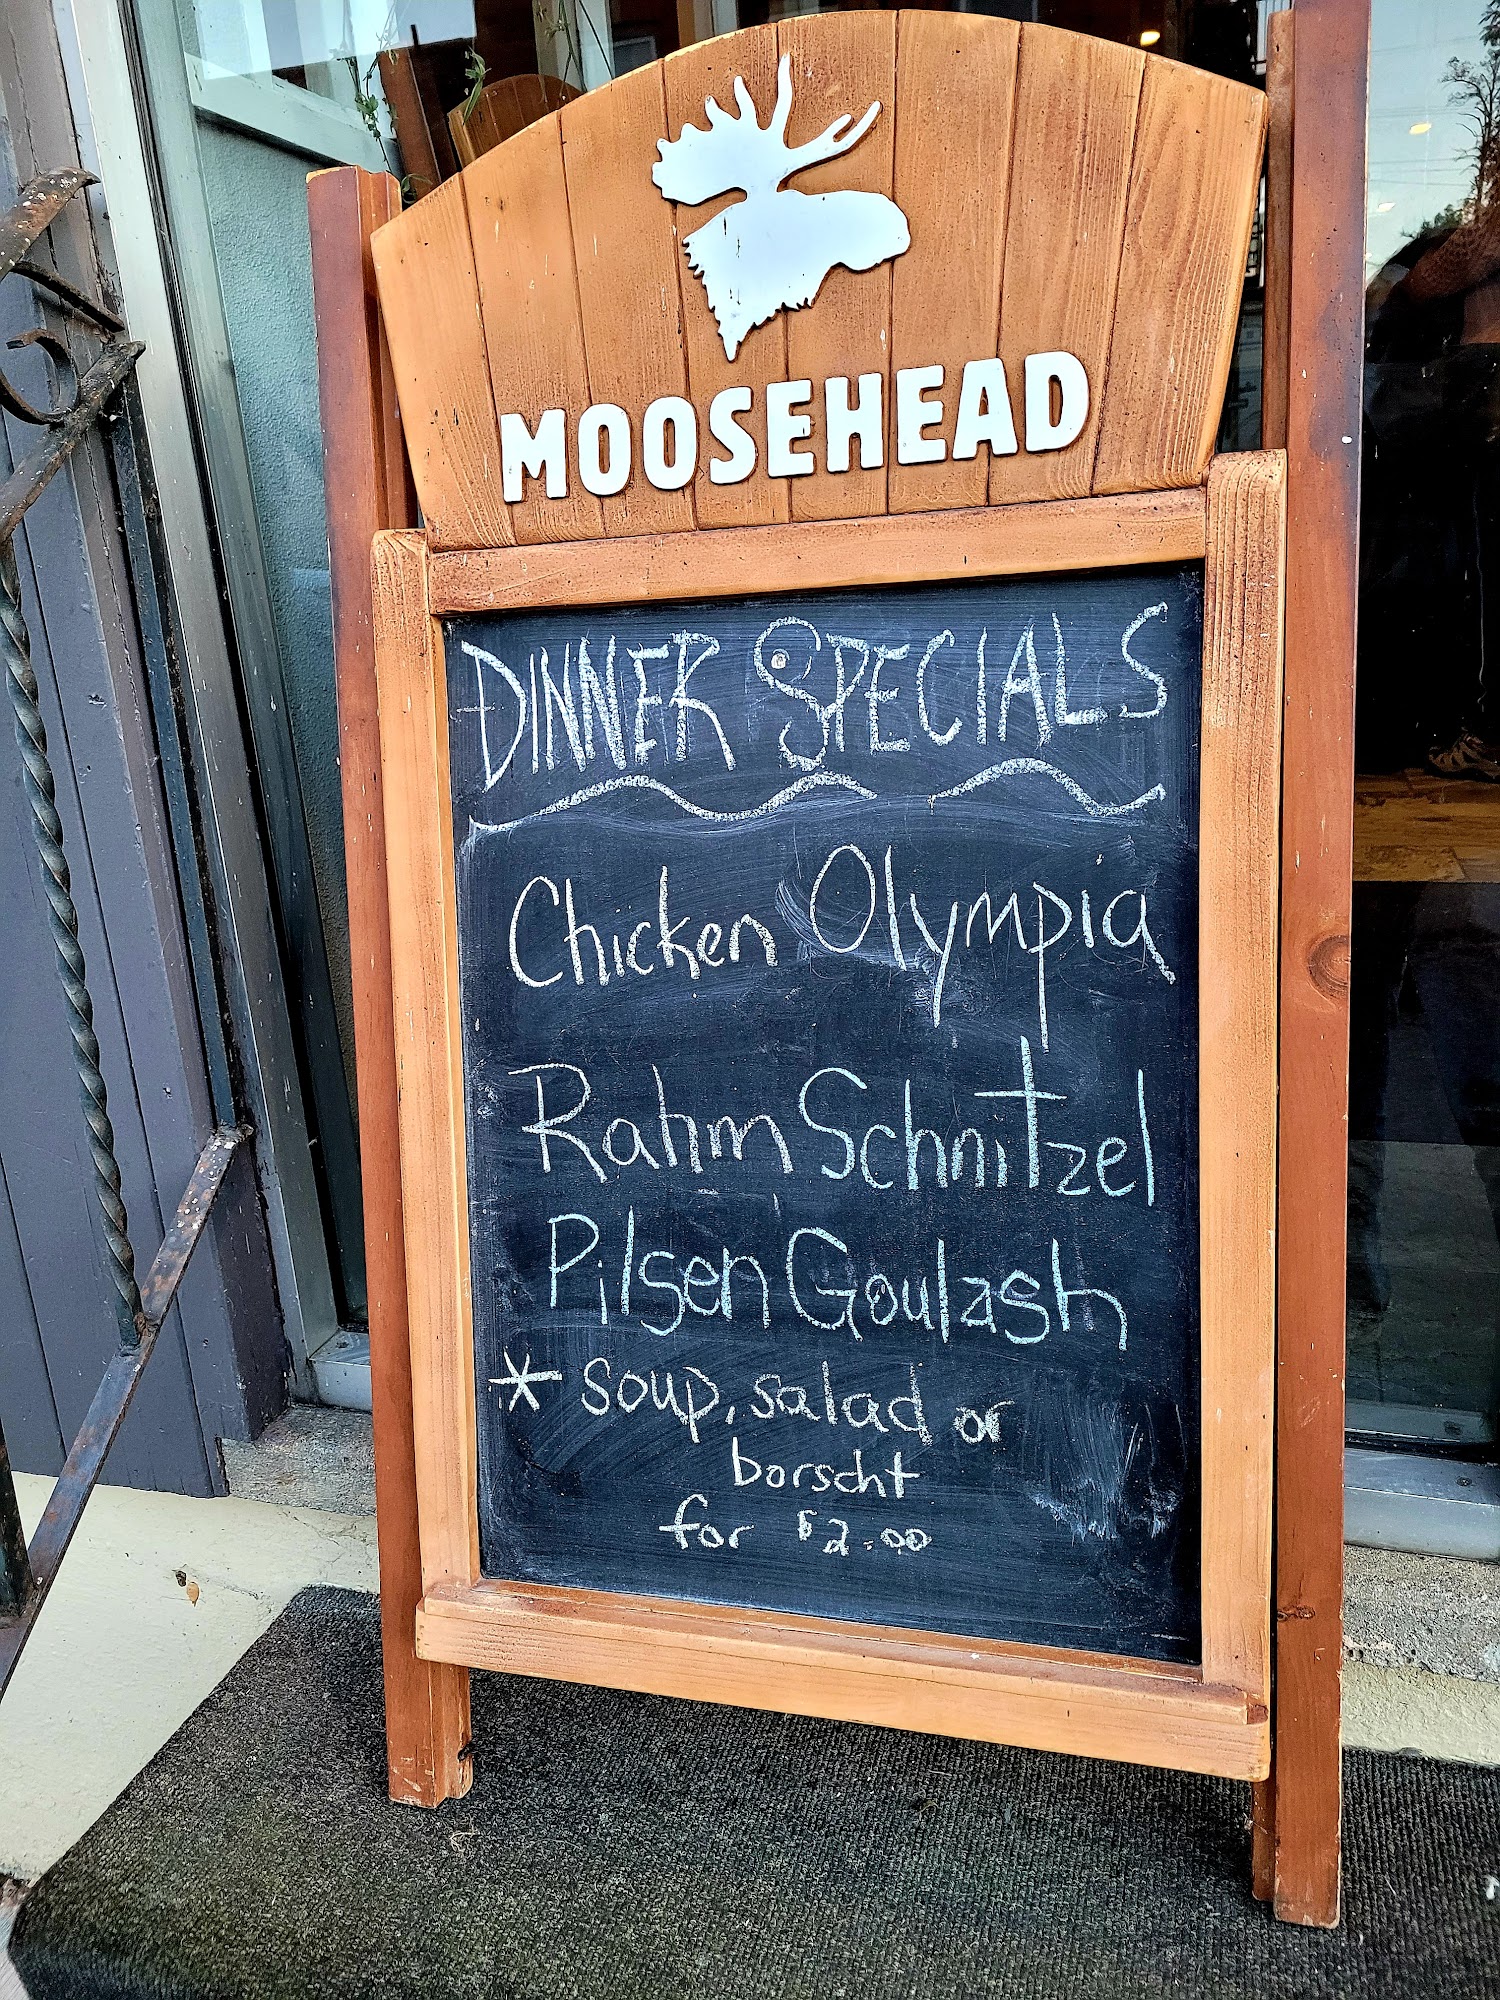 MOOSEHEAD
DINNER SPECIALS
Chicken Olympia
Rahm Schnitzel
Pilsen Goulash
* soup, salad or
borscht
for $2.00